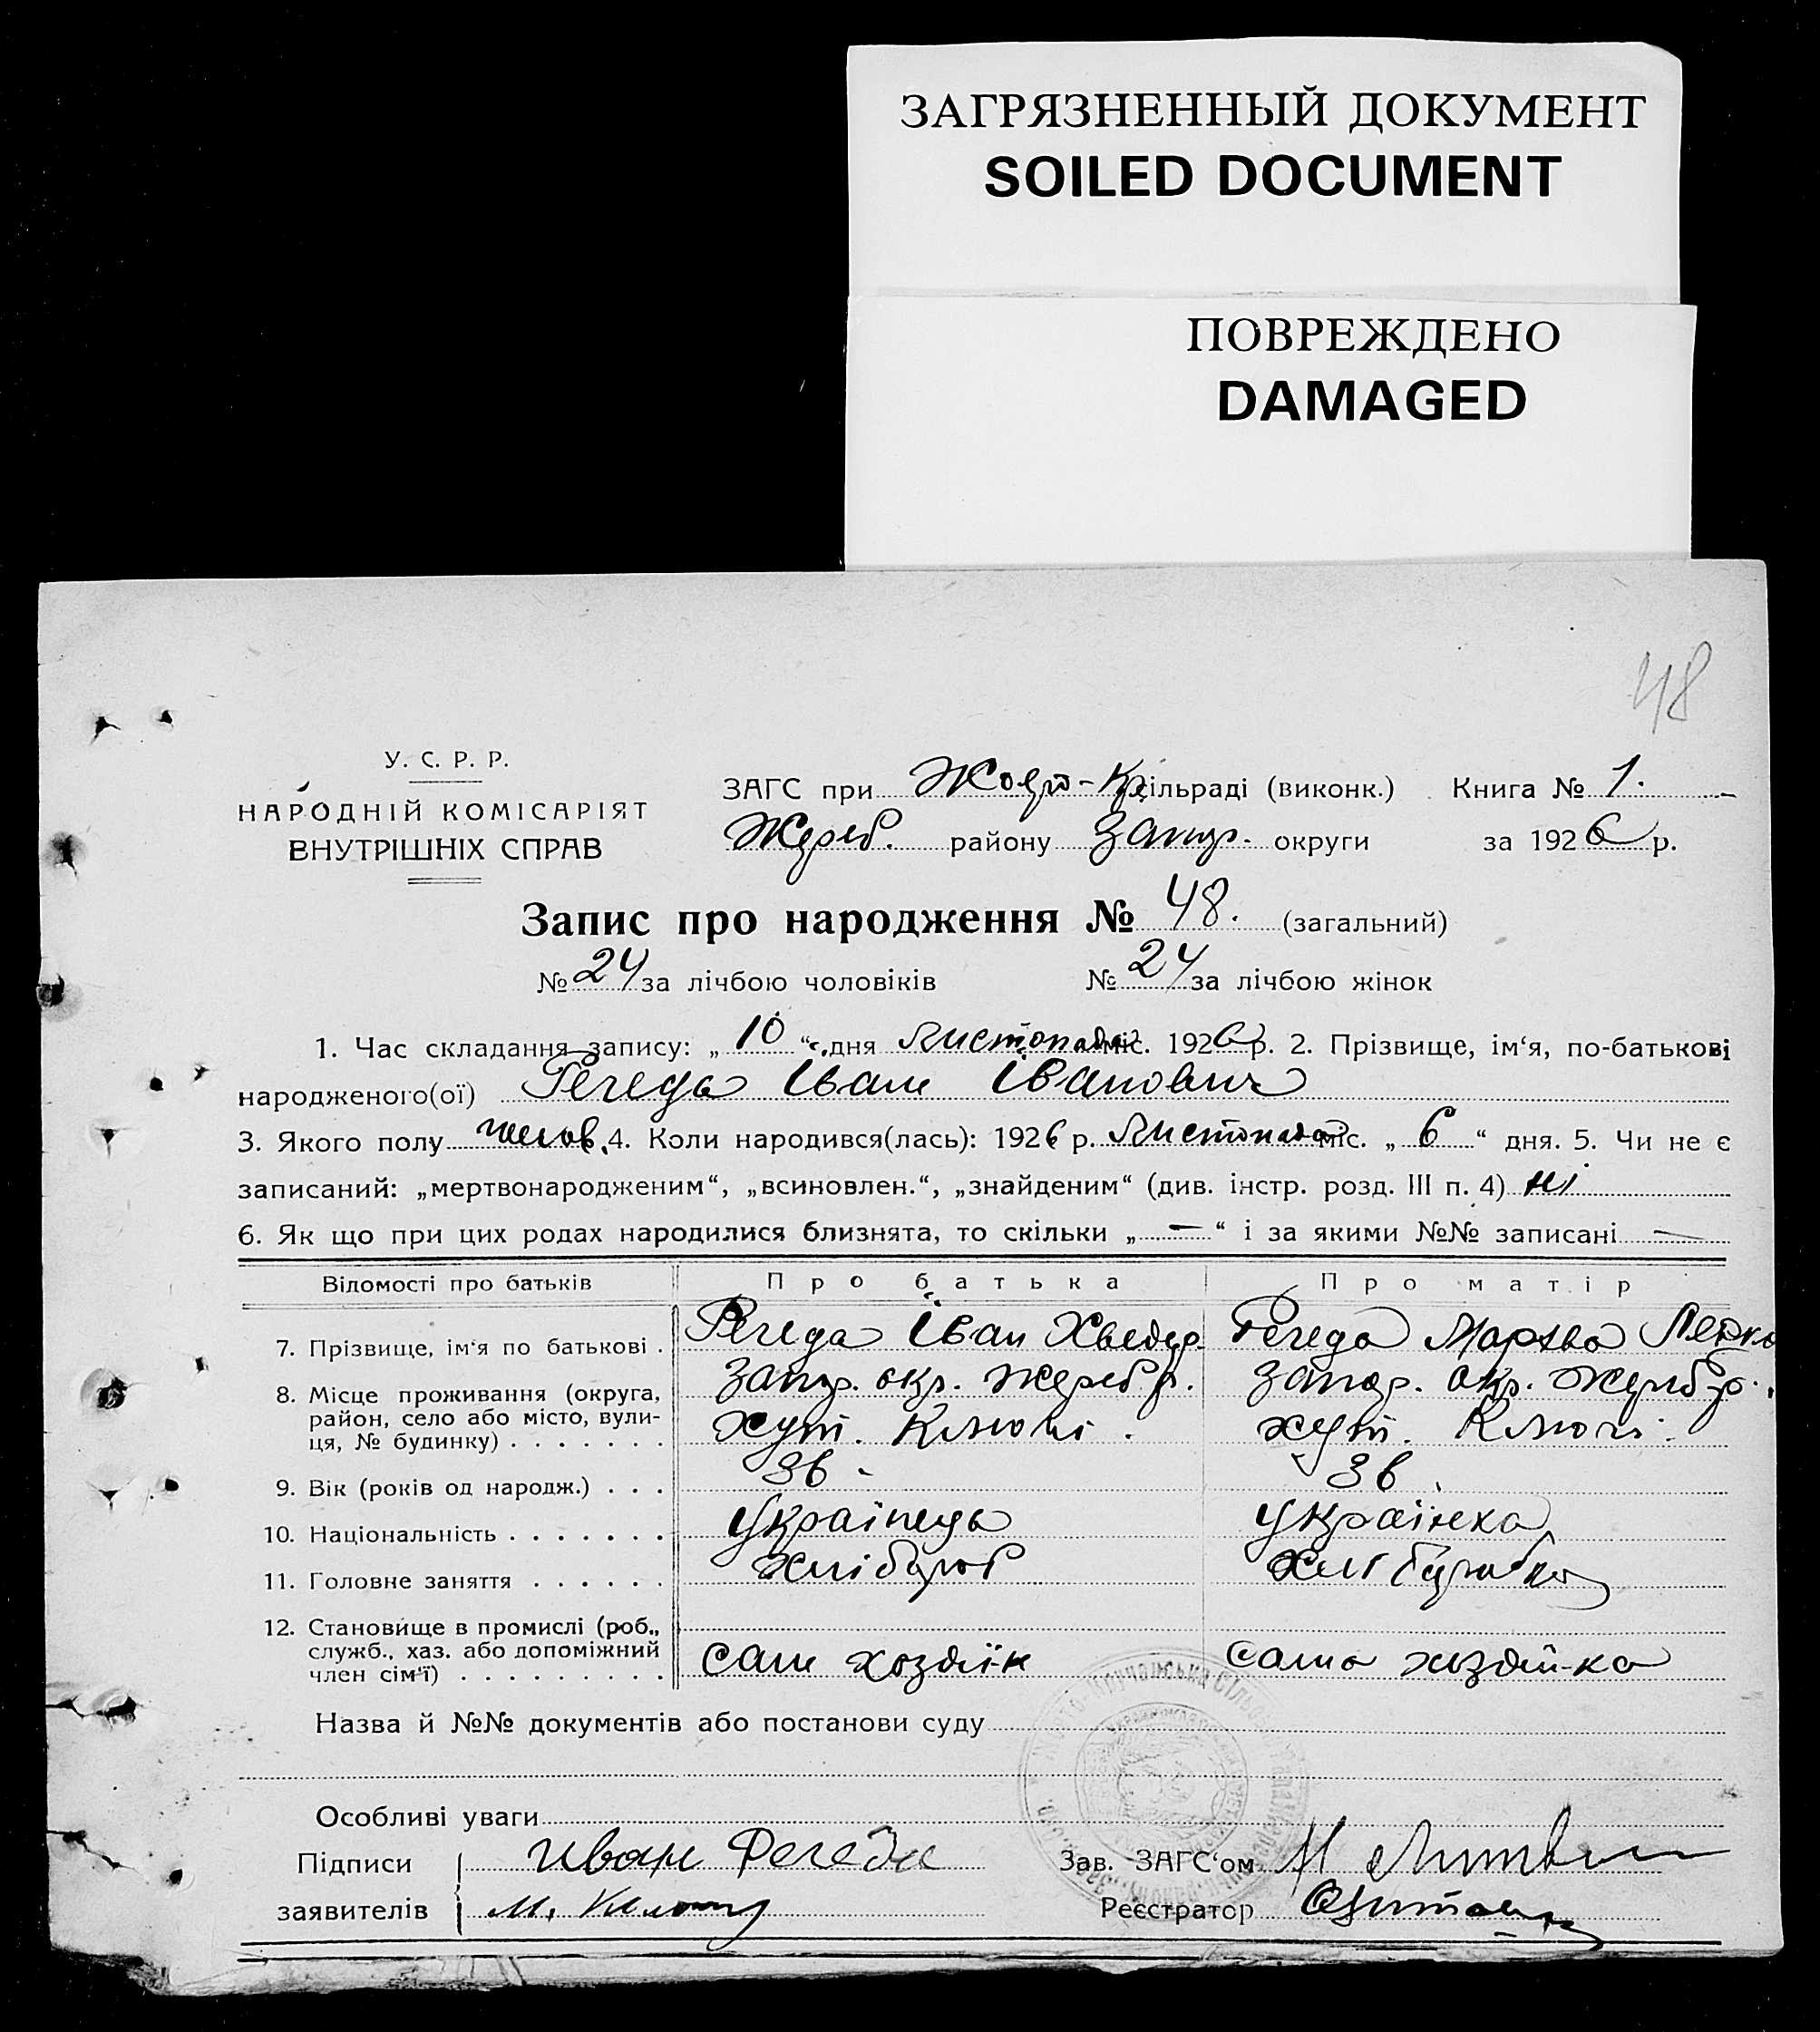 ЗАГРЯЗНЕННЫЙ ДОКУМЕНТ
SOILED DOCUMENT
ПОВРЕЖДЕНО
DAMAGED
48
У. С. Р. Р.
НАРОДНІЙ КОМІСАРІЯТ
ВНУТРІШНІХ СПРАВ
ЗАГС при Жовто-Кр сільраді (виконк.) Книга № 1.
Жереб. району Запор. округи за 1926 р.
Запис про народження № 48. (загальний)
№ 24 за лічбою чоловіків № 24 за лічбою жінок
1. Час складання запису: „ 10 “ дня Листопада міс. 1926 р. 2. Прізвище, ім‘я, по-батькові
народженого(ої) Регеда Іван Іванович
3. Якого полу чолов. 4. Коли народився(лась): 1926 р. Листопада міс. „ 6 “ дня. 5. Чи не є
записаний: „мертвонародженим“, „всиновлен.“, „знайденим“ (див. інстр. розд. III п. 4) ні
6. Як що при цих родах народилися близнята, то скільки „ — “ і за якими №№ записані —
Відомості про батьків Про батька Про матір
7. Прізвище, ім‘я по батькові . Регеда Іван Хведор. Регеда Мархва
8. Місце проживання (округа, Запор. окр. Жереб. р. Запор. окр. Жереб. р.
район, село або місто, вули- хут. Ключі. хут. Ключі.
ця, № будинку) . . . . . . .
9. Вік (років од народж.) . . . 36. 36.
10. Національність . . . . . . . Українець Українка
11. Головне заняття . . . . . . хлібороб хліборобка
12. Становище в промислі (роб.,
служб., хаз. або допоміжний
член сім‘ї) . . . . . . . . . сам хоздяїн сама хоздяй-ка
Назва й №№ документів або постанови суду
Особливі уваги
Підписи Иван Регеда Зав. ЗАГС‘ом
заявителів М. Реєстратор